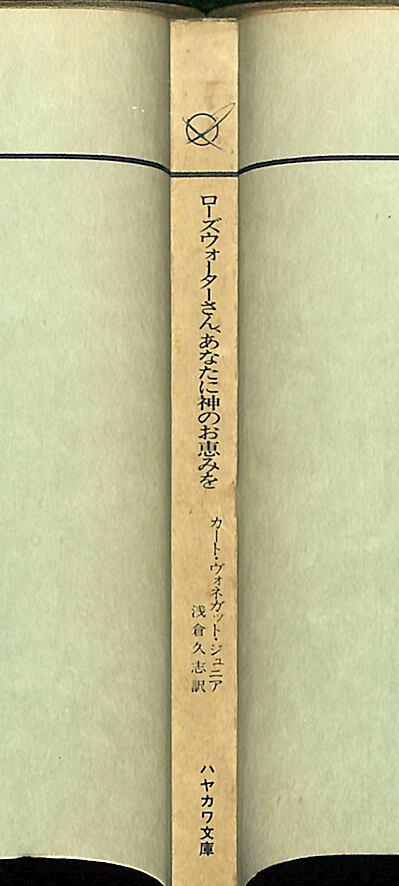 ローズウォーターさん、あなたに神のお恵みを
カート・ヴォネガット・ジュニア
浅倉久志訳
ハヤカワ文庫